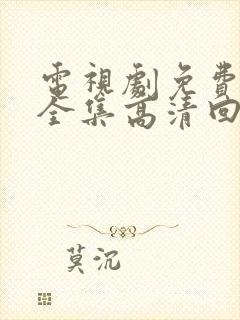 電視劇免費
全集高清回
莫沉